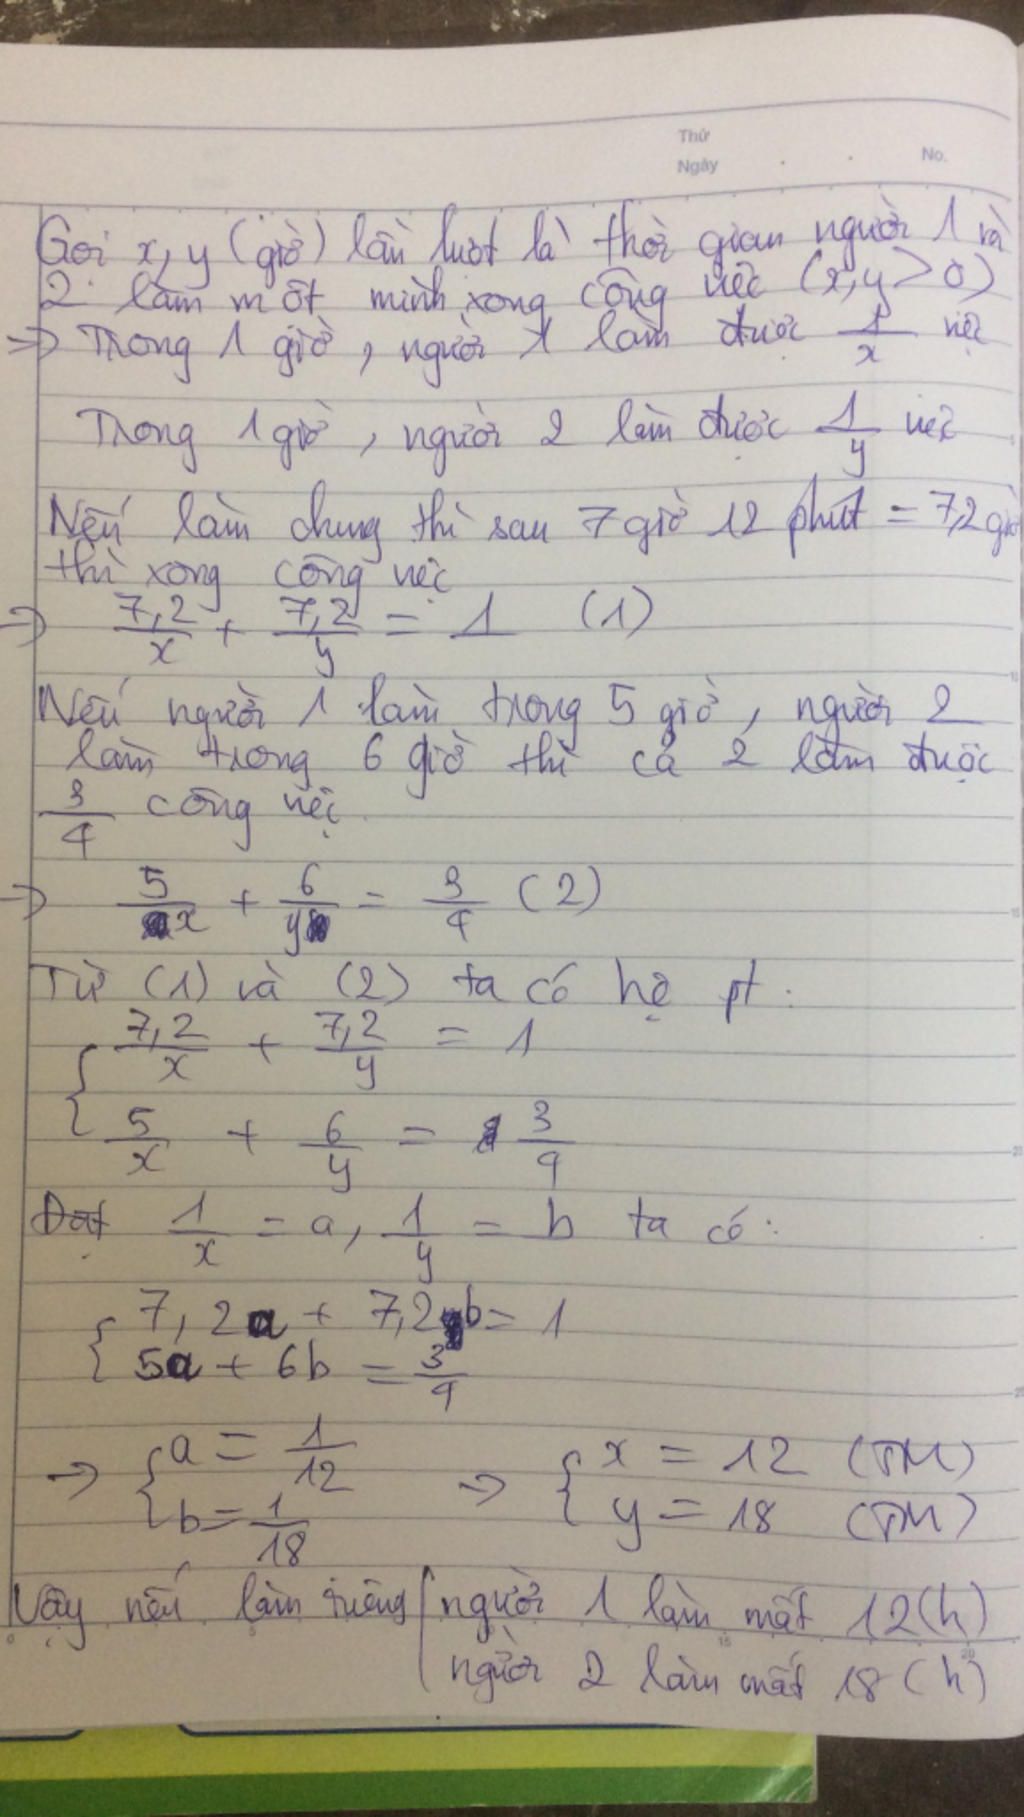 Thứ
Ngày
No.
Gọi x, y (giờ) lần lượt là thời gian người 1 và
2 làm một mình xong công việc (x, y > 0)
=> Trong 1 giờ, người 1 làm được 1/x việc
Trong 1 giờ, người 2 làm được 1/y việc
Nếu làm chung thì sau 7 giờ 12 phút = 7,2 giờ
thì xong công việc
=> 7,2/x + 7,2/y = 1 (1)
Nếu người 1 làm trong 5 giờ, người 2
làm trong 6 giờ thì cả 2 làm được
3/4 công việc.
=> 5/x + 6/y = 3/4 (2)
Từ (1) và (2) ta có hệ pt:
{ 7,2/x + 7,2/y = 1
5/x + 6/y = 3/4
Đặt 1/x = a, 1/y = b ta có:
{ 7,2a + 7,2b = 1
5a + 6b = 3/4
=> { a = 1/12 => { x = 12 (TM)
b = 1/18 y = 18 (TM)
Vậy nếu làm riêng { người 1 làm mất 12 (h)
người 2 làm mất 18 (h)